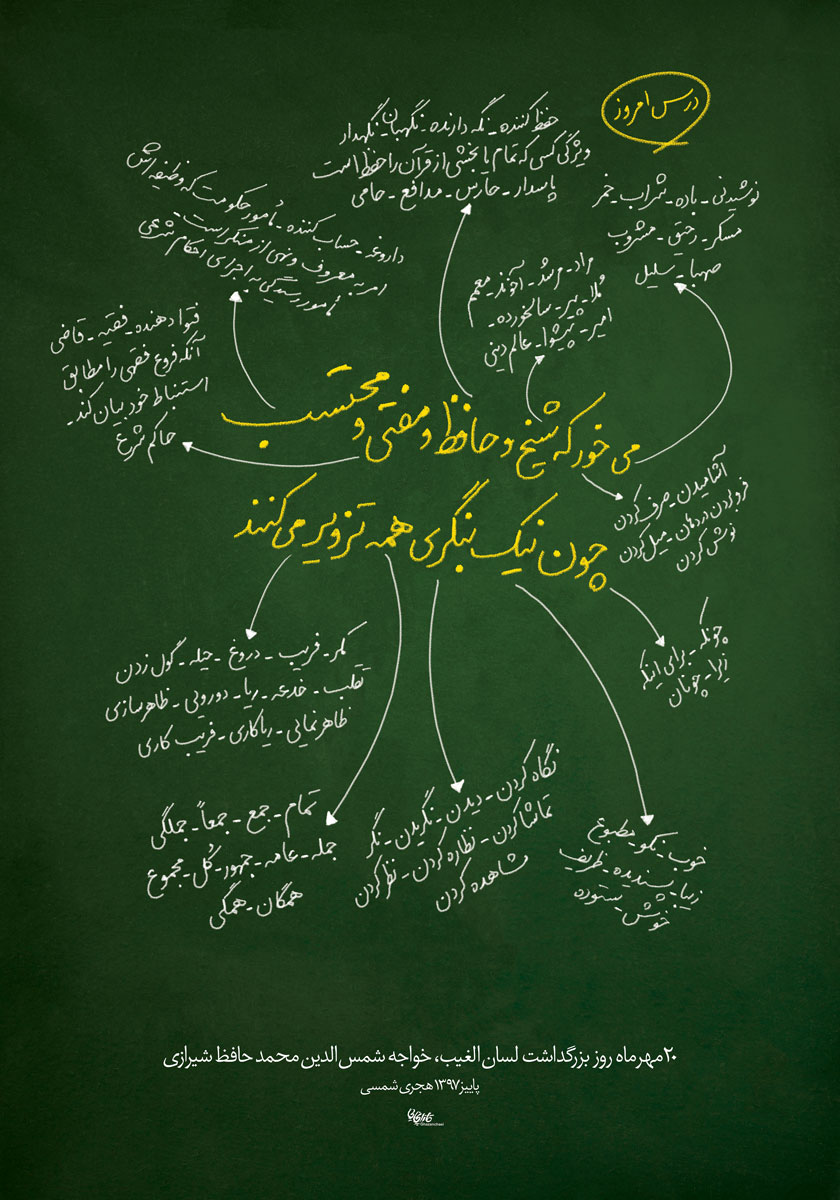 درس امروز
حفظ کننده - نگه دارنده - نگهبان - نگهدار
ویژگی کسی که تمام یا بخشی از قرآن را حفظ است
پاسدار - حارس - مدافع - حامی
نوشیدنی - باده - شراب - خمر
مسکر - رحیق - مشروب
صهبا - سلیل
داروغه - حساب کننده - مأمور حکومت که وظیفه اش
امر به معروف و نهی از منکر است -
مأمور رسیدگی به اجرای احکام شرعی
مراد - مرشد - آخوند - معمم
مُلا - پیر - سالخورده -
امیر - پیشوا - عالم دینی
فتوا دهنده - فقیه - قاضی
آنکه فروع فقهی را مطابق
استنباط خود بیان کند -
حاکم شرع
می خور که شیخ و حافظ و مفتی و محتسب
چون نیک بنگری همه تزویر می کنند
آشامیدن - صرف کردن
فرو کردن در دهان - میل کردن
نوش کردن
چونکه - برای اینکه
زیرا - چونان
مکر - فریب - دروغ - حیله - گول زدن
تقلب - خدعه - ریا - دورویی - ظاهرسازی
ظاهرنمایی - ریاکاری - فریب کاری
تمام - جمع - جمعاً - جملگی
جمله - عامه - جمهور - کُل - مجموع
همگان - همگی
نگاه کردن - دیدن - نگریدن - نگر
تماشا کردن - نظاره کردن - نظر کردن
مشاهده کردن
خوب - نکو - مطبوع
زیبا - پسندیده - ظریف
خوش - ستوده
۲۰ مهرماه روز بزرگداشت لسان الغیب، خواجه شمس الدین محمد حافظ شیرازی
پاییز ۱۳۹۷ هجری شمسی